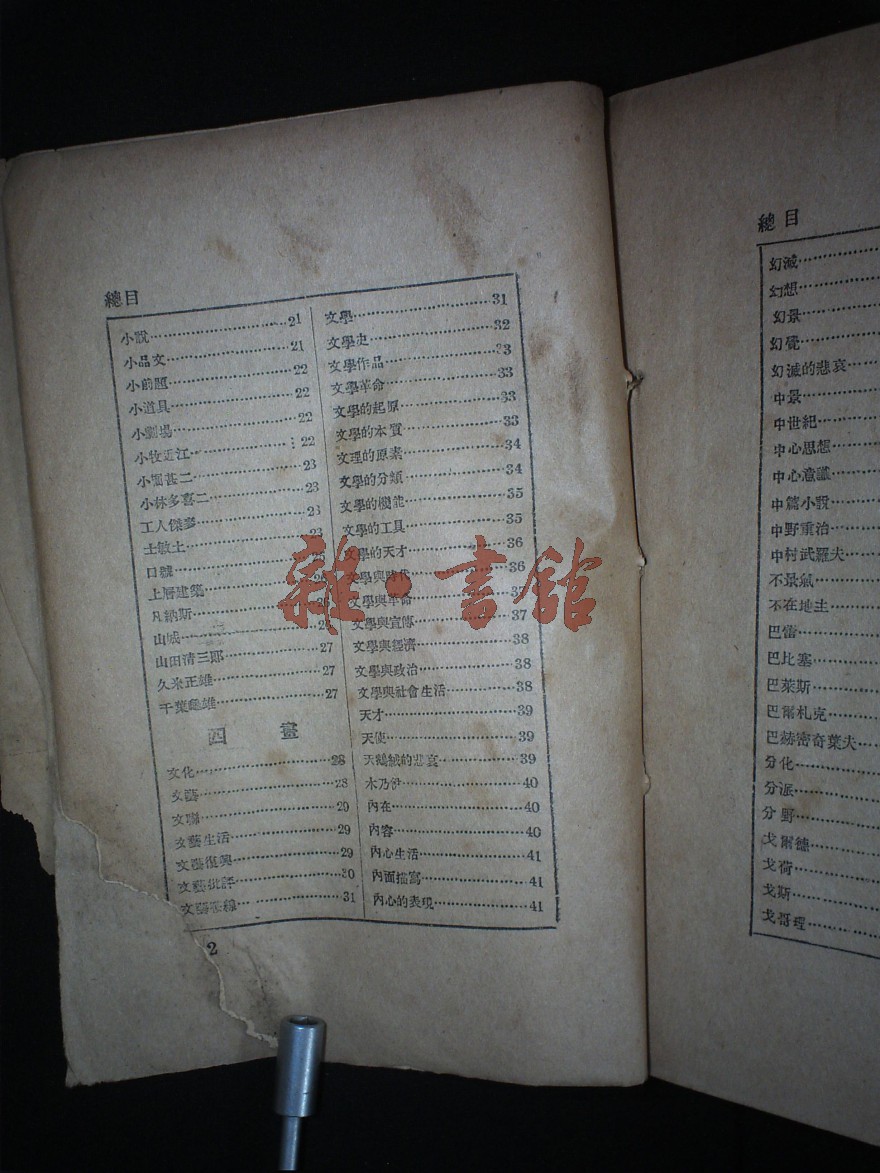 總目
小說……21
小品文……21
小前題……22
小道具……22
小劇場……22
小牧近江……22
小堀甚二……23
小林多喜二……23
工人傑麥……23
士敏土……23
口號
上層建築……26
凡納斯
山城
山田清三郎……27
久米正雄……27
千葉龜雄……27
四畫
文化……28
文藝……28
文聯……29
文藝生活……29
文藝復興……29
文藝批評……30
文藝……31
文學……31
文學史……32
文學作品……33
文學革命……33
文學的起原……33
文學的本質……33
文理的原素……34
文學的分類……34
文學的機能……35
文學的工具……35
文學的天才……36
文學與時代……36
文學與革命……37
文學與宣傳……37
文學與經濟……38
文學與政治……38
文學與社會生活……38
天才……39
天使……39
天鵝絨的悲哀……39
木乃伊……40
內在……40
內容……40
內心生活……41
內面描寫……41
內心的表現……41
2
總目
幻滅……
幻想……
幻景……
幻覺……
幻滅的悲哀……
中景……
中世紀……
中心思想……
中心意識……
中篇小說……
中野重治……
中村武羅夫……
不景氣……
不在地主……
巴當……
巴比塞……
巴萊斯……
巴爾札克……
巴赫密奇葉夫……
分化……
分派……
分野……
戈爾德……
戈荷……
戈斯……
戈哥理……
雜·書館